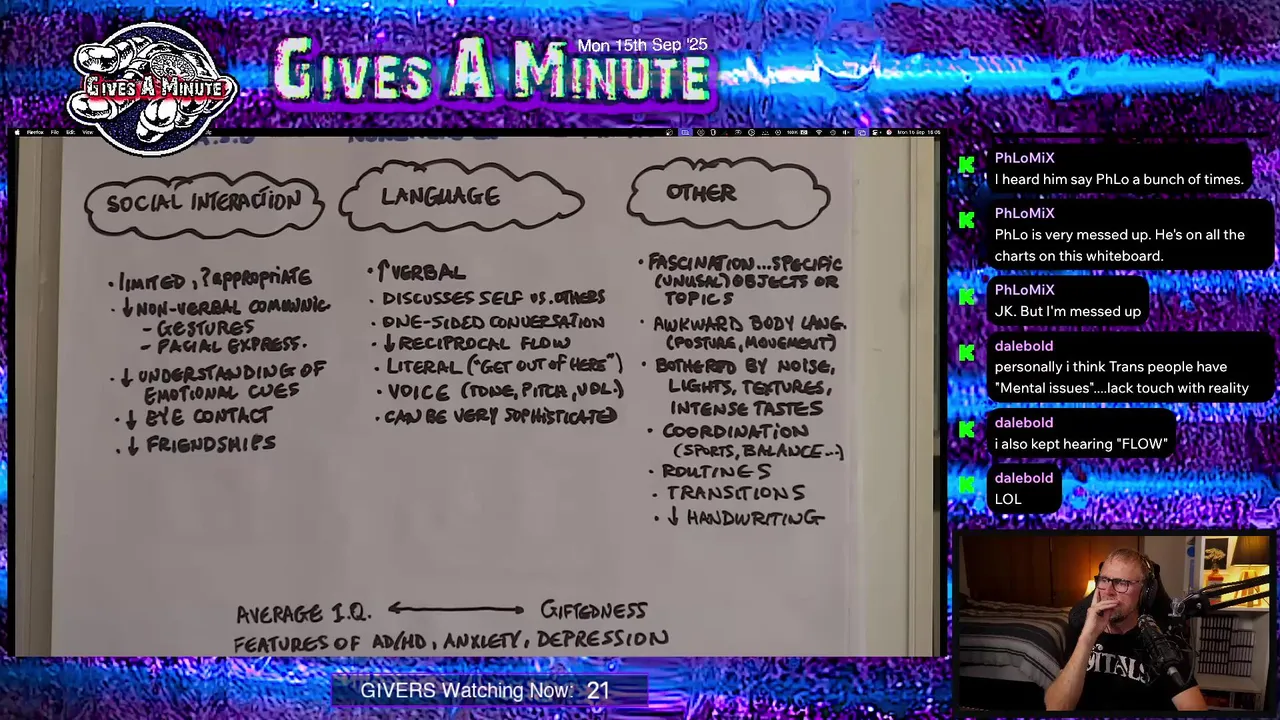 GIVES A MINUTE
Mon 15th Sep '25
GIVES A MINUTE
Firefox File Edit View
SOCIAL INTERACTION
· limited, ? appropriate
↓ NON-VERBAL COMMUNIC
- GESTURES
- FACIAL EXPRESS.
· ↓ UNDERSTANDING OF
EMOTIONAL CUES
· ↓ EYE CONTACT
· ↓ FRIENDSHIPS
LANGUAGE
· ↑ VERBAL
· DISCUSSES SELF VS. OTHERS
· ONE-SIDED CONVERSATION
· ↓ RECIPROCAL FLOW
· LITERAL ("GET OUT OF HERE")
· VOICE (TONE, PITCH, VOL.)
· CAN BE VERY SOPHISTICATED
OTHER
· FASCINATION...SPECIFIC
(UNUSAL) OBJECTS OR
TOPICS
· AWKWARD BODY LANG.
(POSTURE, MOVEMENT)
· BOTHERED BY NOISE,
LIGHTS, TEXTURES,
INTENSE TASTES
· COORDINATION
(SPORTS, BALANCE...)
· ROUTINES
· TRANSITIONS
· ↓ HANDWRITING
AVERAGE I.Q. ↔ GIFTEDNESS
FEATURES OF AD/HD, ANXIETY, DEPRESSION
PhLoMiX
I heard him say PhLo a bunch of times.
PhLoMiX
PhLo is very messed up. He's on all the
charts on this whiteboard.
PhLoMiX
JK. But I'm messed up
dalebold
personally i think Trans people have
"Mental issues"....lack touch with reality
dalebold
i also kept hearing "FLOW"
dalebold
LOL
GIVERS Watching Now: 21